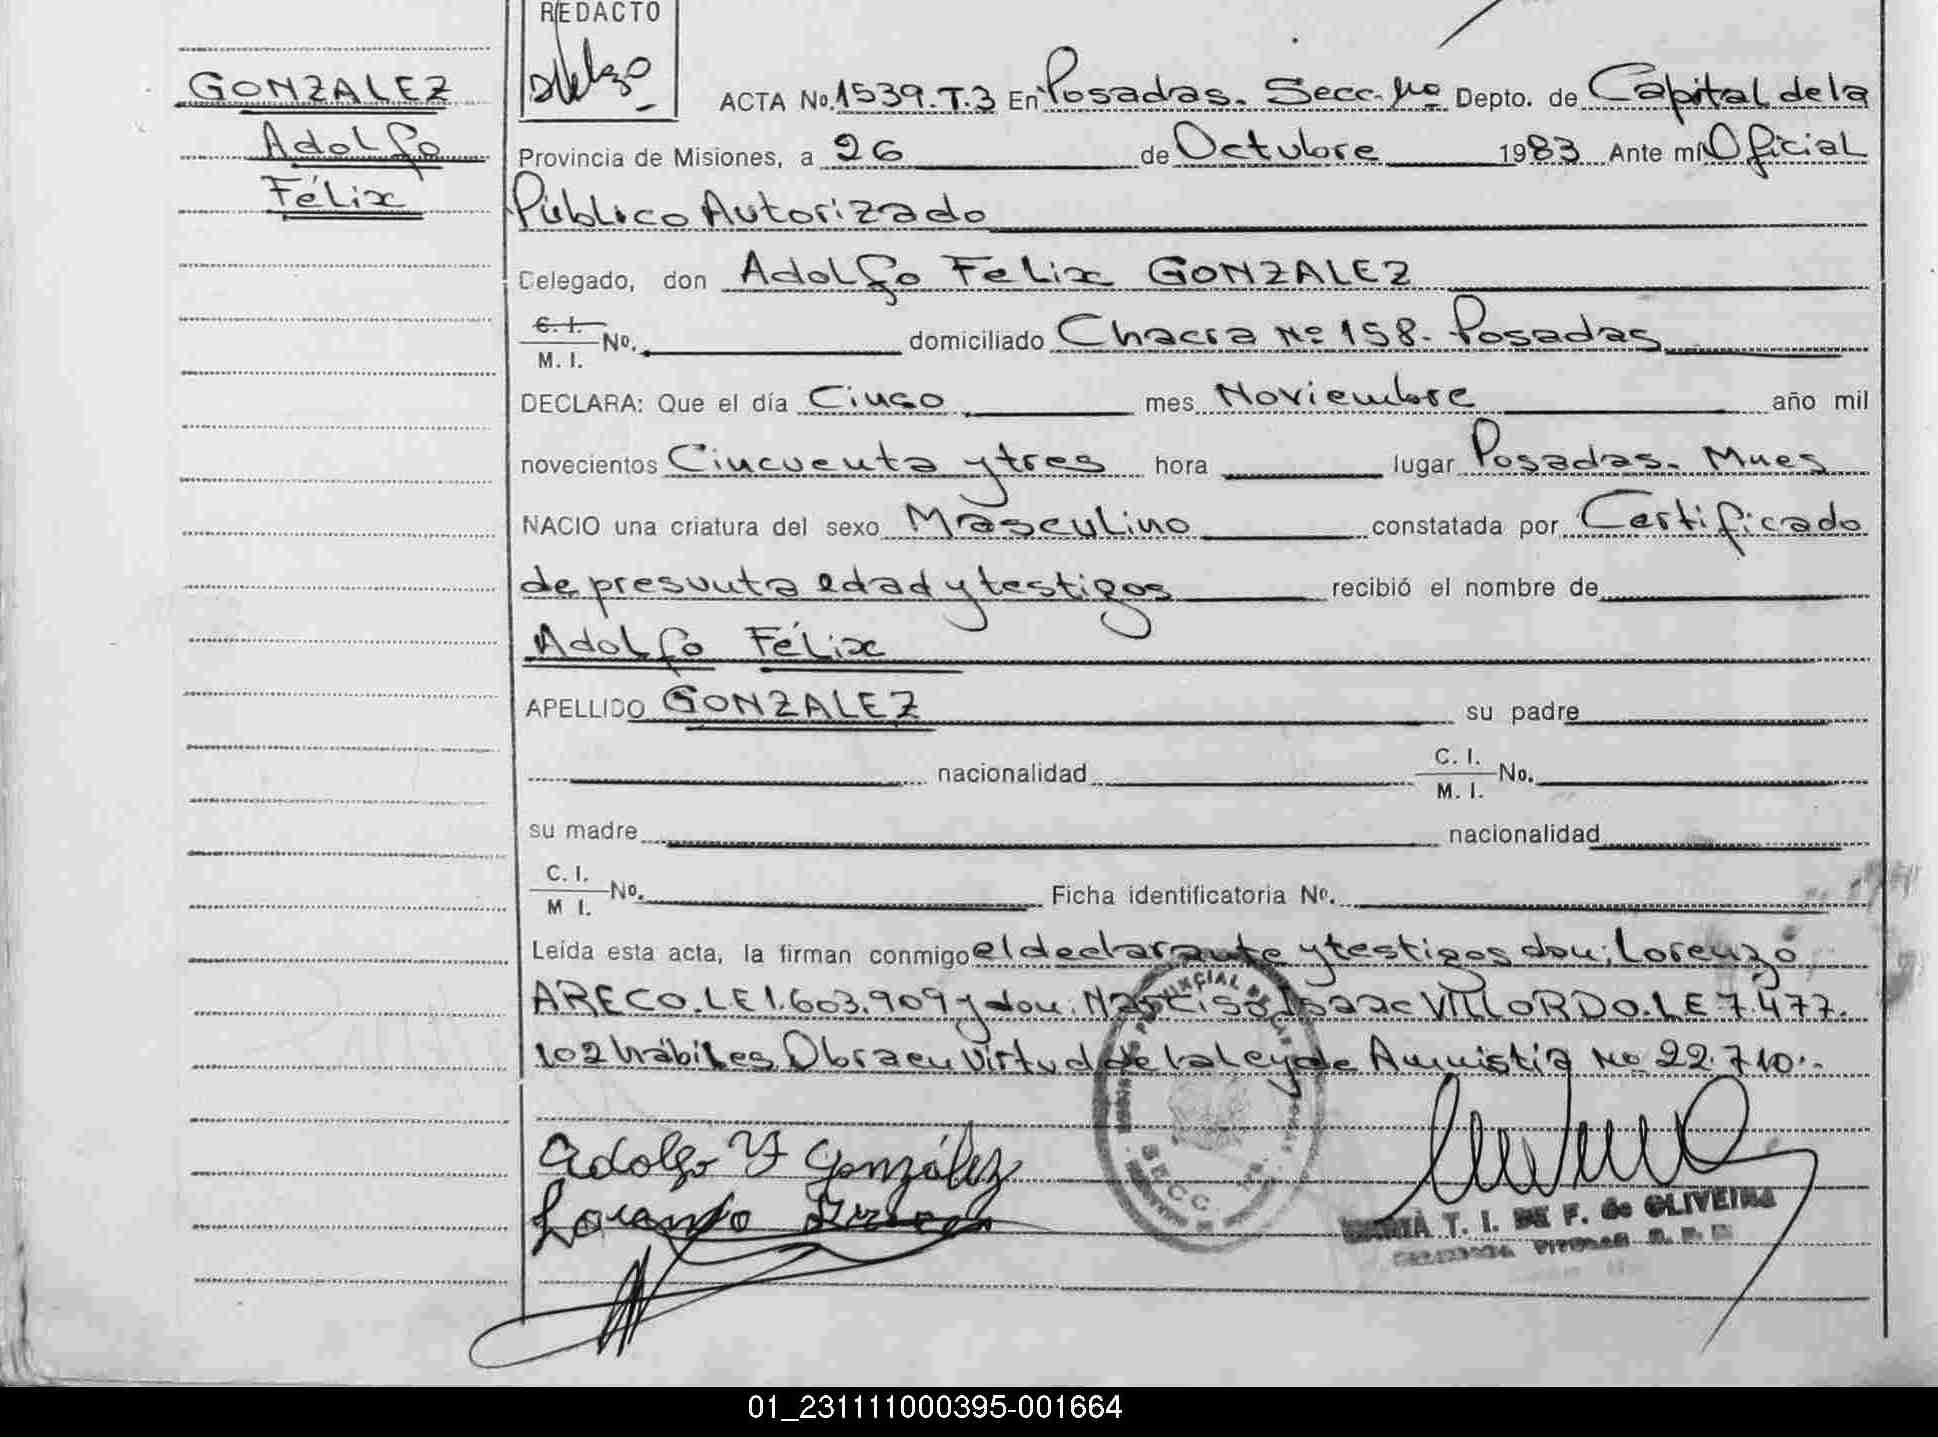 REDACTO
GONZALEZ
Adolfo
Félix
ACTA No. 1539.T.3 En Posadas. Secc. 1ra Depto. de Capital de la
Provincia de Misiones, a 26 de Octubre 1983 Ante mí Oficial
Público Autorizado
Delegado, don Adolfo Felix GONZALEZ
C. I.
M. I. No. domiciliado Chacra Nº 158. Posadas
DECLARA: Que el día Cinco mes Noviembre año mil
novecientos Cincuenta y tres hora lugar Posadas. Mnes
NACIO una criatura del sexo Masculino constatada por Certificado
de presunta edad y testigos recibió el nombre de
Adolfo Félix
APELLIDO GONZALEZ su padre
nacionalidad C. I.
M. I. No.
su madre nacionalidad
C. I.
M I. No. Ficha identificatoria No.
Leída esta acta, la firman conmigo el declarante y testigos don: Lorenzo
ARECO. LE 1.603.909 y don: Narciso Isaac VILLORDO. LE 7.477.
102 hábiles. Obra en virtud de la Ley de Amnistia No 22.710.-
Adolfo F González
MARTA T. I. DE F. de OLIVEIRA
SECC.
01_231111000395-001664